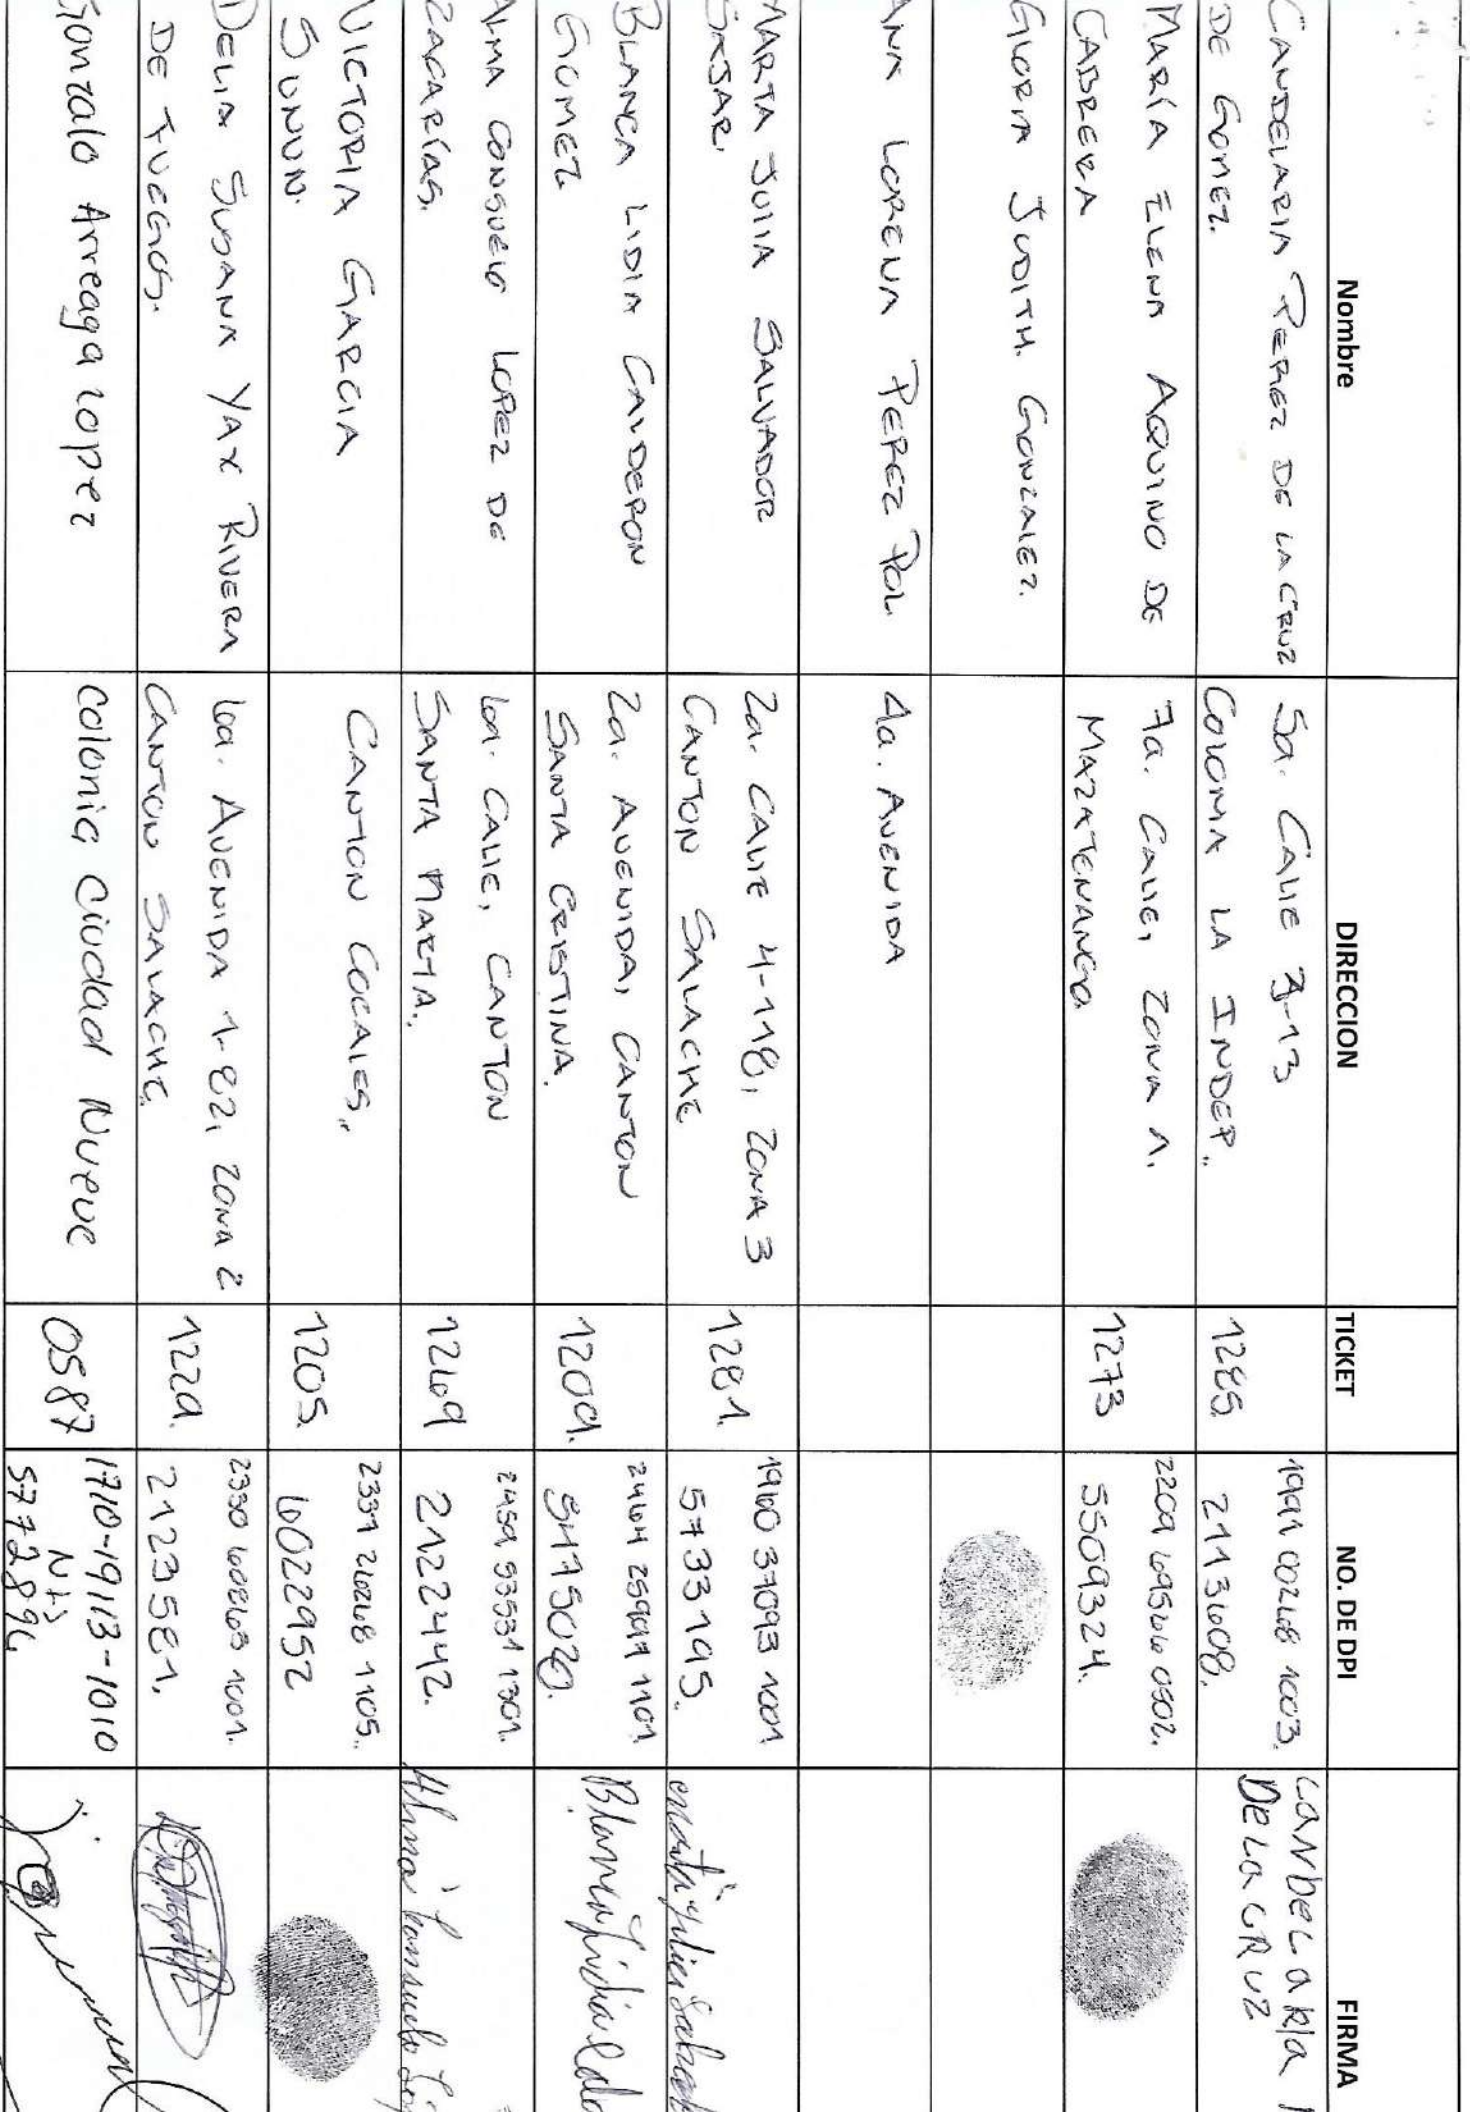 Nombre DIRECCION TICKET NO. DE DPI FIRMA
CANDELARIA PEREZ DE LA CRUZ
DE GOMEZ.
5a. CALLE 3-13
COLONIA LA INDEP.
1285.
1991 00268 1003.
2113608.
CANDELARIA
DE LA CRUZ
MARÍA ELENA AQUINO DE
CABRERA
7a. CALLE, ZONA 1.
MAZATENANGO
1273
2209 69566 0502.
5509324.
GLORIA JUDITH. GONZALEZ.
ANA LORENA PEREZ POL.
4a. AVENIDA
MARTA JULIA SALVADOR
SASAR.
2a. CALLE 4-118, ZONA 3
CANTON SALACHE
1281.
1960 37093 1001
5733195.
BLANCA LIDIA CALDERON
GOMEZ
2a. AVENIDA, CANTON
SANTA CRISTINA.
1209.
5475020.
Blanca Lidia Calde
ALMA CONSUELO LOPEZ DE
ZACARÍAS.
6a. CALLE, CANTON
SANTA MARTA.
1269
2459 53531 1301.
2122442.
Alma Consuelo Lóp
VICTORIA GARCIA
SUNUN.
CANTON COCALES.
1205.
2331 26268 1105.
6022952
DELIA SUSANA YAX RIVERA
DE FUEGOS.
6a. AVENIDA 1-82, ZONA 2
CANTON SALACHE.
1229.
2330 60863 1001.
2123581.
Gonzalo Arreaga Lopez
Colonia Ciudad Nueve
0587
1710-19113-1010
Nit
5772896